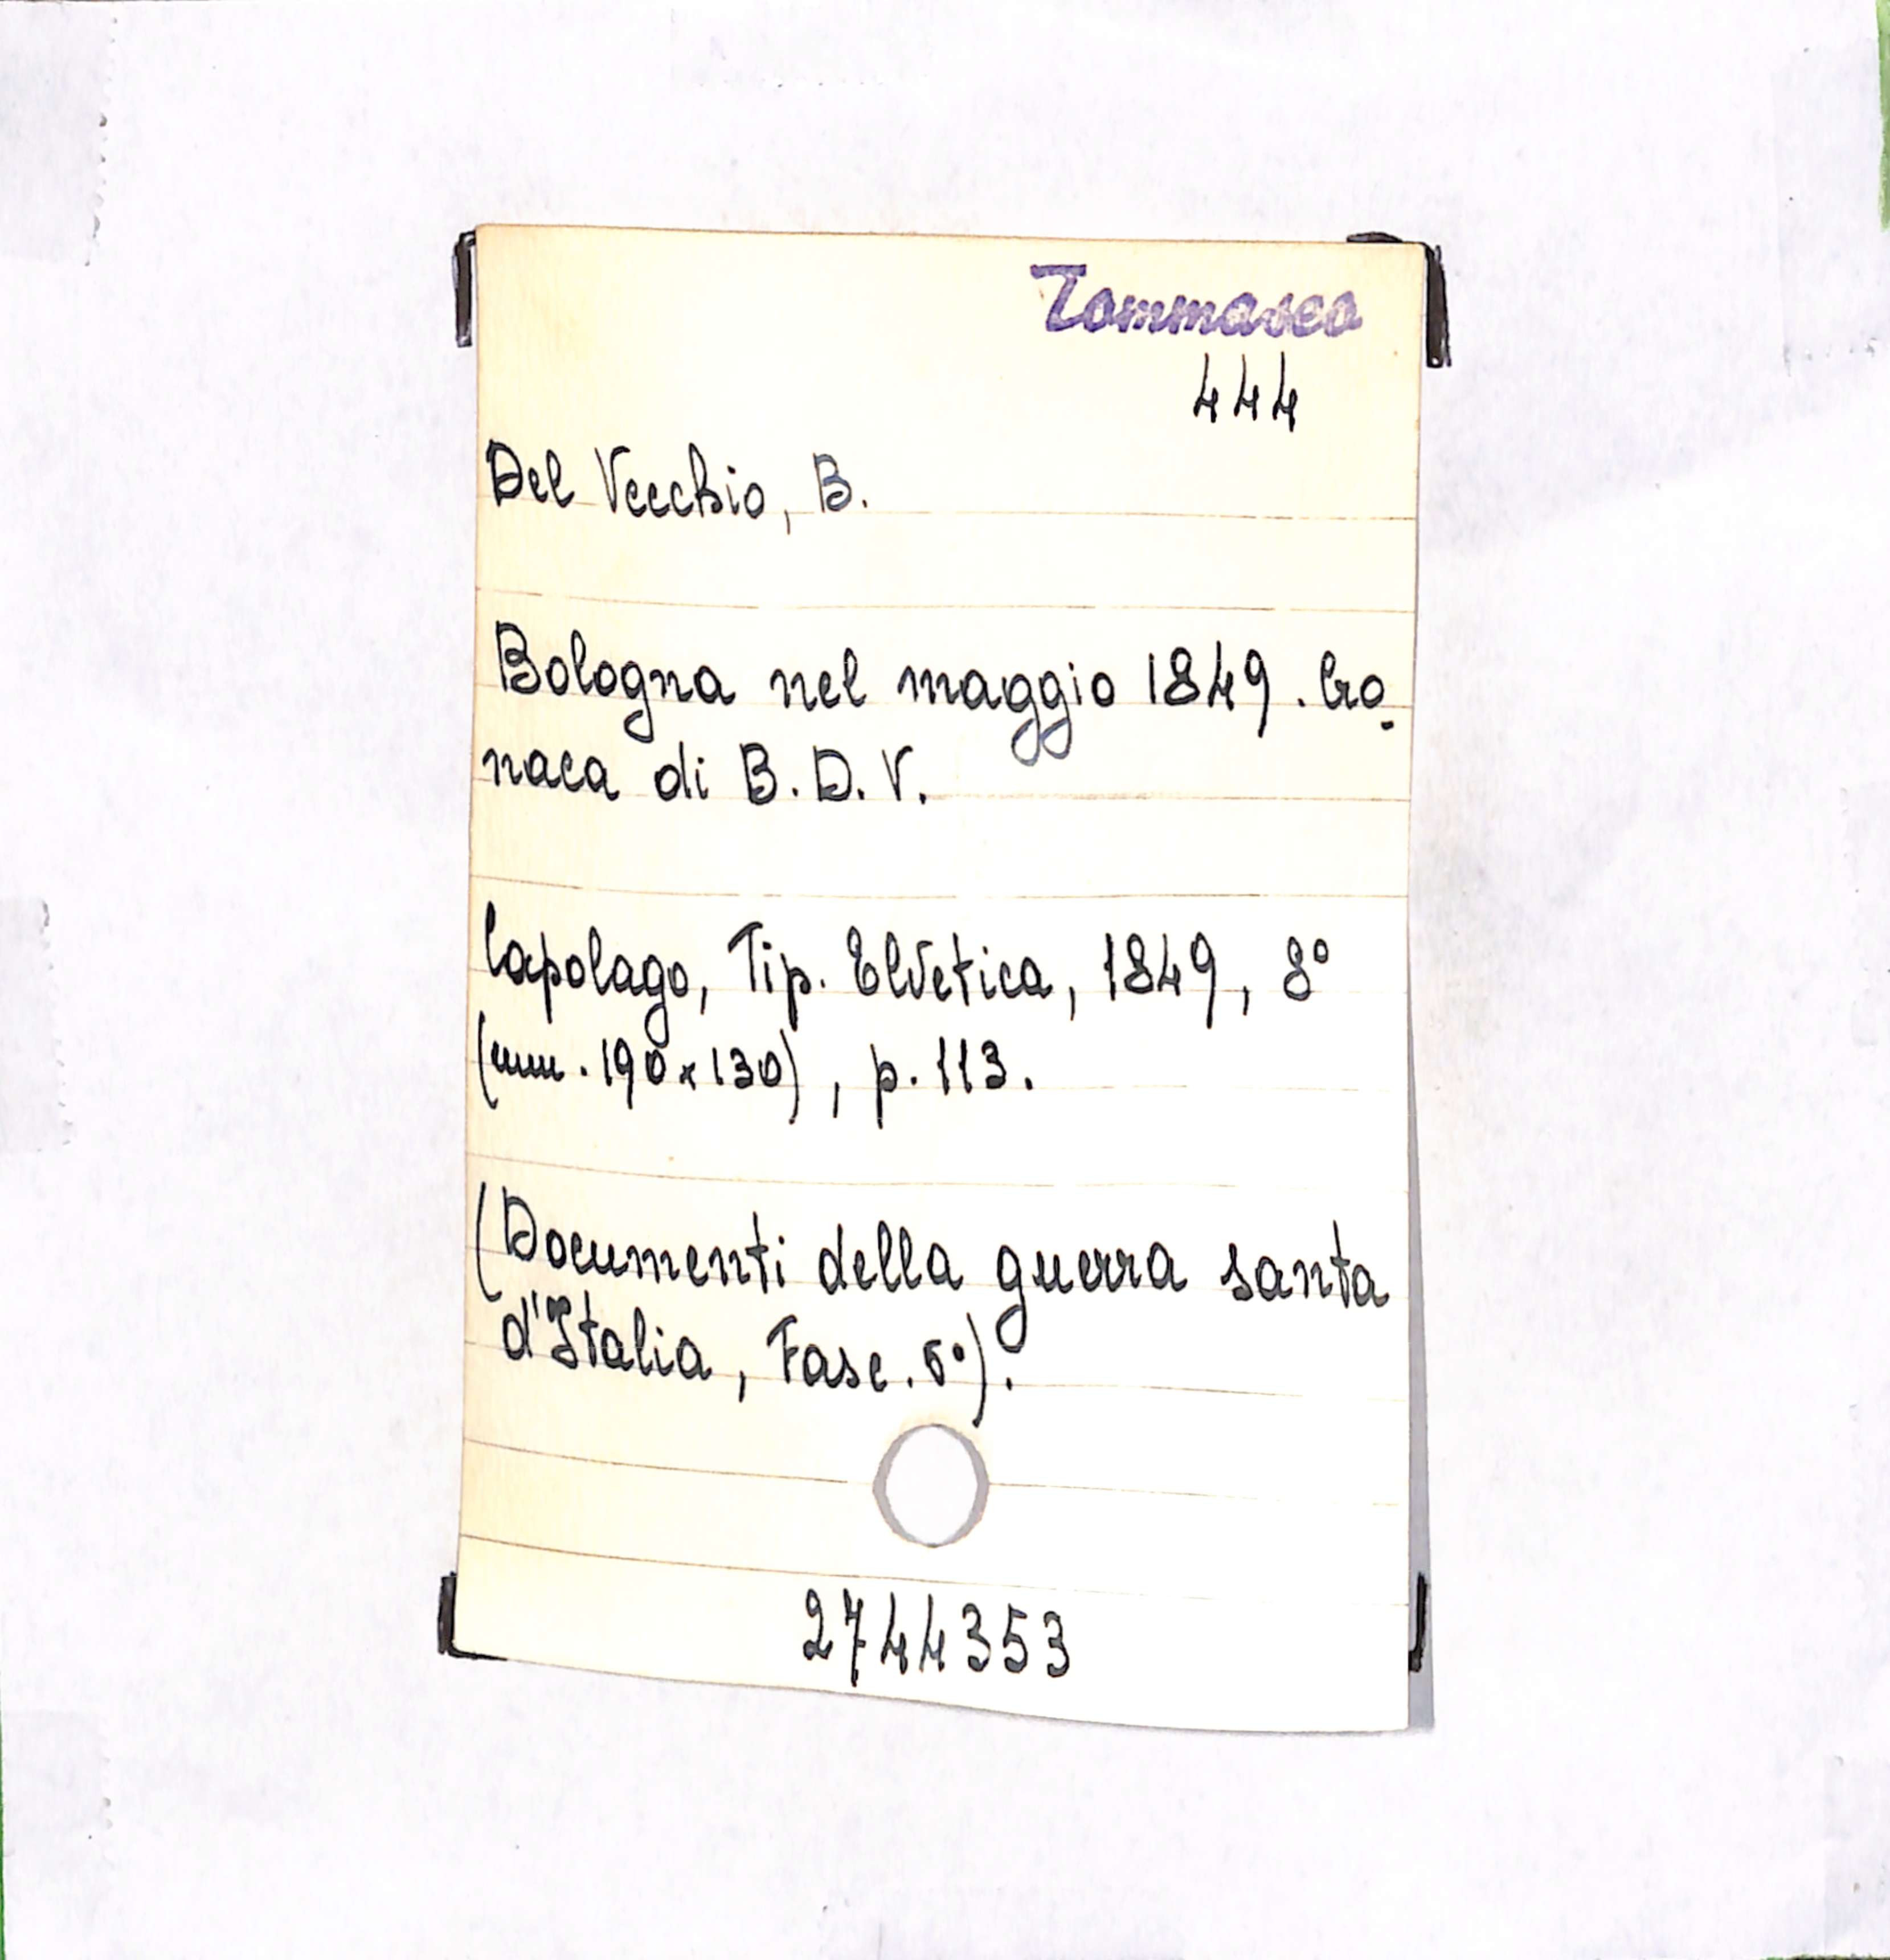 Tommaseo
444
Del Vecchio, B.
Bologna nel maggio 1849. Cro-
naca di B. D. V.
Capolago, Tip. Elvetica, 1849, 8°
(mm. 190x130), p. 113.
(Documenti della guerra santa
d'Italia, Fasc. 5°).
2744353